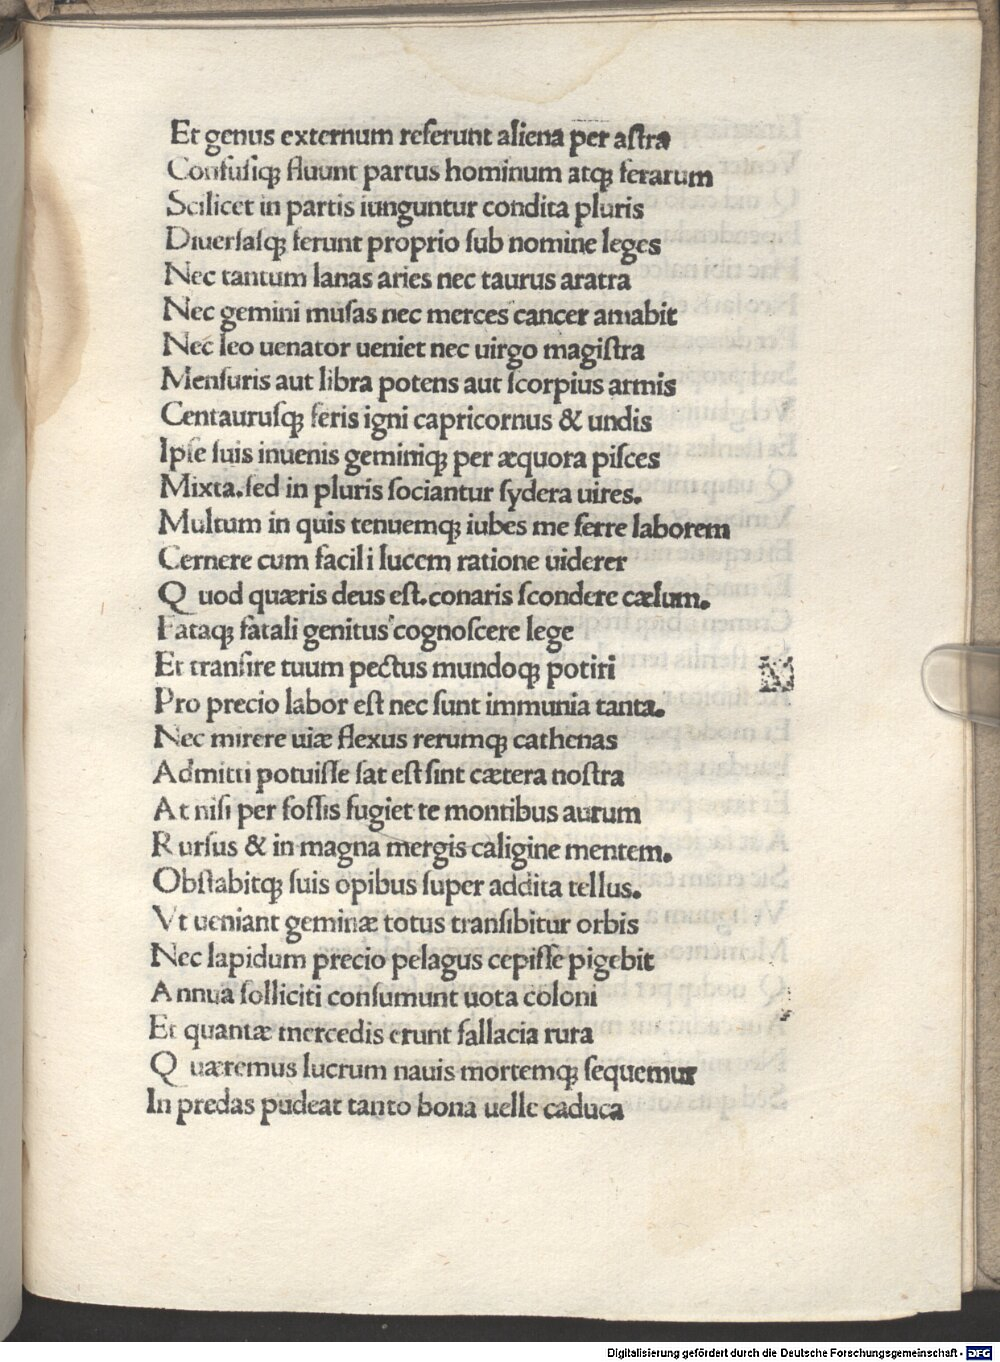 Et genus externum referunt aliena per astra
Confusiq; fluunt partus hominum atq; ferarum
Scilicet in partis iunguntur condita pluris
Diuersasq; ferunt proprio sub nomine leges
Nec tantum lanas aries nec taurus aratra
Nec gemini musas nec merces cancer amabit
Nec leo uenator ueniet nec uirgo magistra
Mensuris aut libra potens aut scorpius armis
Centaurusq; feris igni capricornus & undis
Ipse suis inuenis geminiq; per æquora pisces
Mixta. sed in pluris sociantur sydera uires.
Multum in quis tenuemq; iubes me ferre laborem
Cernere cum facili lucem ratione uiderer
Quod quæris deus est. conaris scondere cælum.
Fataq; fatali genitus cognoscere lege
Et transire tuum pectus mundoq; potiri
Pro precio labor est nec sunt immunia tanta.
Nec mirere uiæ flexus rerumq; cathenas
Admitti potuisse sat est sint cætera nostra
At nisi per fossis fugiet te montibus aurum
Rursus & in magna mergis caligine mentem.
Obstabitq; suis opibus super addita tellus.
Vt ueniant geminæ totus transibitur orbis
Nec lapidum precio pelagus cepisse pigebit
Annua solliciti consumunt uota coloni
Et quantæ mercedis erunt fallacia rura
Quæremus lucrum nauis mortemq; sequemur
In predas pudeat tanto bona uelle caduca
Digitalisierung gefördert durch die Deutsche Forschungsgemeinschaft - DFG